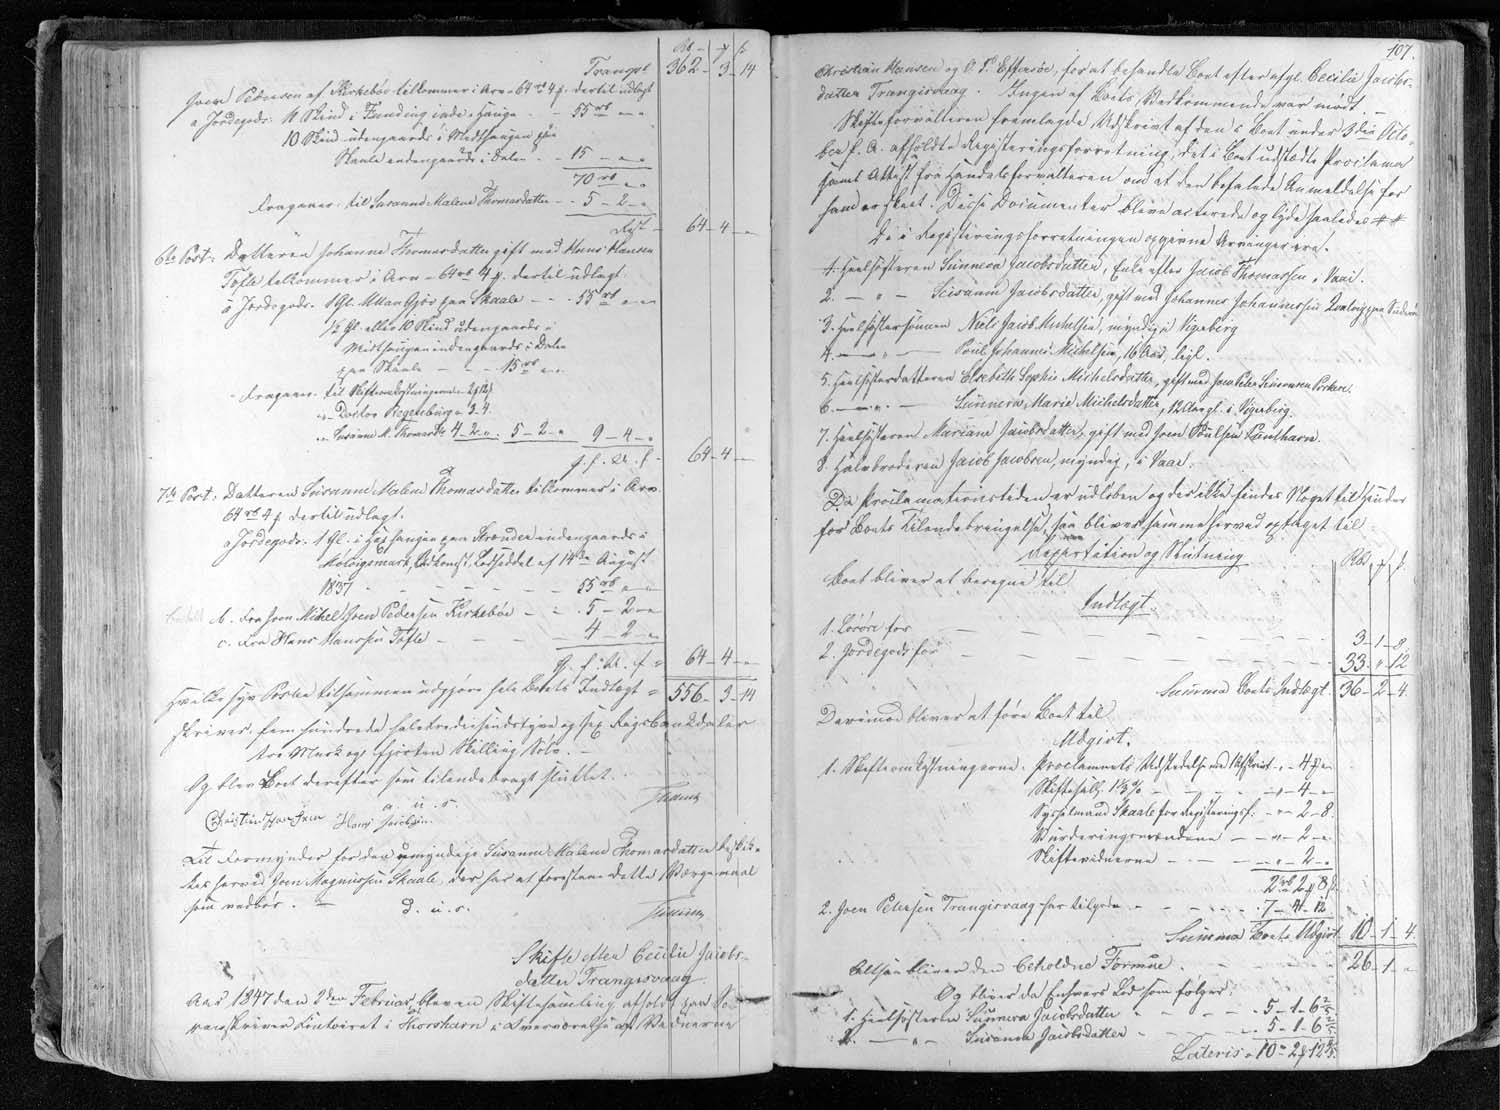 Rbd. ₰ ß
Transpt 362 – 3 – 14
Joen Pedersen af Kirkebøe tilkommer i Arv 64 rb 4 ₰. dertil udlagt
a Jordegods: 11 Skind i Funding inde i Hauge - - 55 rb " – "
10 Skind udengaards i Midthaugen paa
Skaale indengaards i Dalen - - 15 – " – "
70 rb " – "
fragaaer: til Susanne Malene Thomasdatter - - 5 – 2 – "
Rest – 64 – 4 – "
6te Post: Datteren Johanne Thomasdatter gift med Hans Hansen
Tofte tilkommer i Arv 64 rb 4 ₰. dertil udlagt:
a Jordegods. 1 Gl. paa Skaale - - 55 rb " – "
1/2 Gl. eller 10 Skind udengaards i
Midthaugen indengaards i Dalen
paa Skaale - - - 15 rb " – "
fragaaer: til Skifteomkostningerne - 2 ₰ 12
" Doctor Regenburg 3. 4.
" Susanne M. Thomasdtr 4 – 2 – " 5 – 2 – " 9 – 4 – "
64 – 4 – "
7de Post: Datteren Susanne Malene Thomasdatter tilkommer i Arv
64 rb 4 ₰ dertil udlagt.
a Jordegods: 1 Gl. i paa Strænder indengaards i
Lodseddel af 14de August
1837 - - - - - 55 rb " – "
b. fra Joen Michel Joen Pedersen Kirkebøe - - 5 – 2 – "
c. fra Hans Hanssen Tofte - - - - - 4 – 2 – "
64 – 4 – "
Hvilke syv Poster tilsammen udgjøre hele Boets Indtægt = 556 – 3 – 14
skriver fem hundrede halvtredsindstyve og sex Rigsbankdaler
tre Mark og fjorten Skilling Sølv. –
Og blev Boet derefter som tilendebragt sluttet.
a. u. s.
Christian Hansen Hans Jacobsen.
Til Formynder for den umyndige Susanne Malene Thomasdatter beskik-
kes herved Joen Magnussen Skaale, der har at forestaae dette Værgemaal
som vedbør. – D. u. s.
Skifte efter Cecilie Jacobs-
datter Trangisvaag
Aar 1847 den 2den Februar blev en Skiftesamling afholdt paa So-
renskriver Contoiret i Thorshavn i Overværelse af Vidnerne
107.
Christian Hansen og O. P. Effersøe, for at behandle Boet efter afgl. Cecilie Jacobs-
datter Trangisvaag. Ingen af Boets Vedkommende var mødt –
Skifteforvalteren fremlagde Udskrivt af den i Boet under 3die Octo-
ber f. A. afholdte Registeringsforretning, det i Boet udstædte Proclama
samt Attest fra Handelsforvalteren om at den befalede Anmeldelse for
ham er skeet. Disse Documenter bleve acterede og lyde saaledes ##
De i Registeringsforretningen opgivne Arvinger ere:
1. Heelsøsteren Sunneva Jacobsdatter, Enke efter Jacob Thomassen i Vaai.
2. – " – Susanne Jacobsdatter, gift med Johannes Johannessen paa Suderø
3. Heelsøstersønnen Niels Jacob Michelsen, myndig i Vigerberg
4. – " – Poul Johannes Michelsen, 16 Aar, ligl.
5. Heelsøsterdatteren Elsebeth Sophie Michelsdatter, gift med Joen Peter Simonsen Porkere.
6. – " – Sunneva Marie Michelsdatter, 12 Aar gl. i Vigerberg.
7. Heelsøsteren Mariane Jacobsdatter, gift med Joen Poulsen Famharn.
8. Halvbroderen Jacob Jacobsen, myndig, i Vaai.
Da Proclamaternstiden er udløben og der ikke findes Noget til Hinder
for Boets Tilendebringelse, saa bliver samme herved optaget til
Repartition og Slutning
Rbd. ₰ ß.
Boet bliver at beregne til
Indtægt.
1. Løsøre for - - - - - - 3 – 1 – 8
2. Jordegods for - - - - - - 33 – " – 12
Summa Boets Indtægt 36 – 2 – 4.
Derimod bliver at føre Boet til
Udgivt.
1. Skifteomkostningerne. Proclamaets Udstedelse med 1 Udskrivt - " – 4 ₰ "
Skiftesall. 1 1/3 % - - - - " – 4 – "
Sysselmand Skaale for Registeringsf. - " – 2 – 8.
Vurderingsmændene - - " – 2 – "
Skiftevidnerne - - - - " – 2 – "
2 rb 2 ₰ 8 ß
2. Joen Petersen Trangisvaag har tilgode - - - - - 7 – 4 – 12
Summa Boets Udgivt 10 – 1 – 4
Altsaa bliver den beholdne Formue - - - - 26 – 1 – "
Og bliver da Enhvers Lod som følger:
1. Heelsøsteren Sunneva Jacobsdatter - - - - 5 – 1 – 6 2/5
2. – " – Susanne Jacobsdatter - - - - 5 – 1 – 6 2/5
Lateris " 10 " 2 ₰ 12 4/5